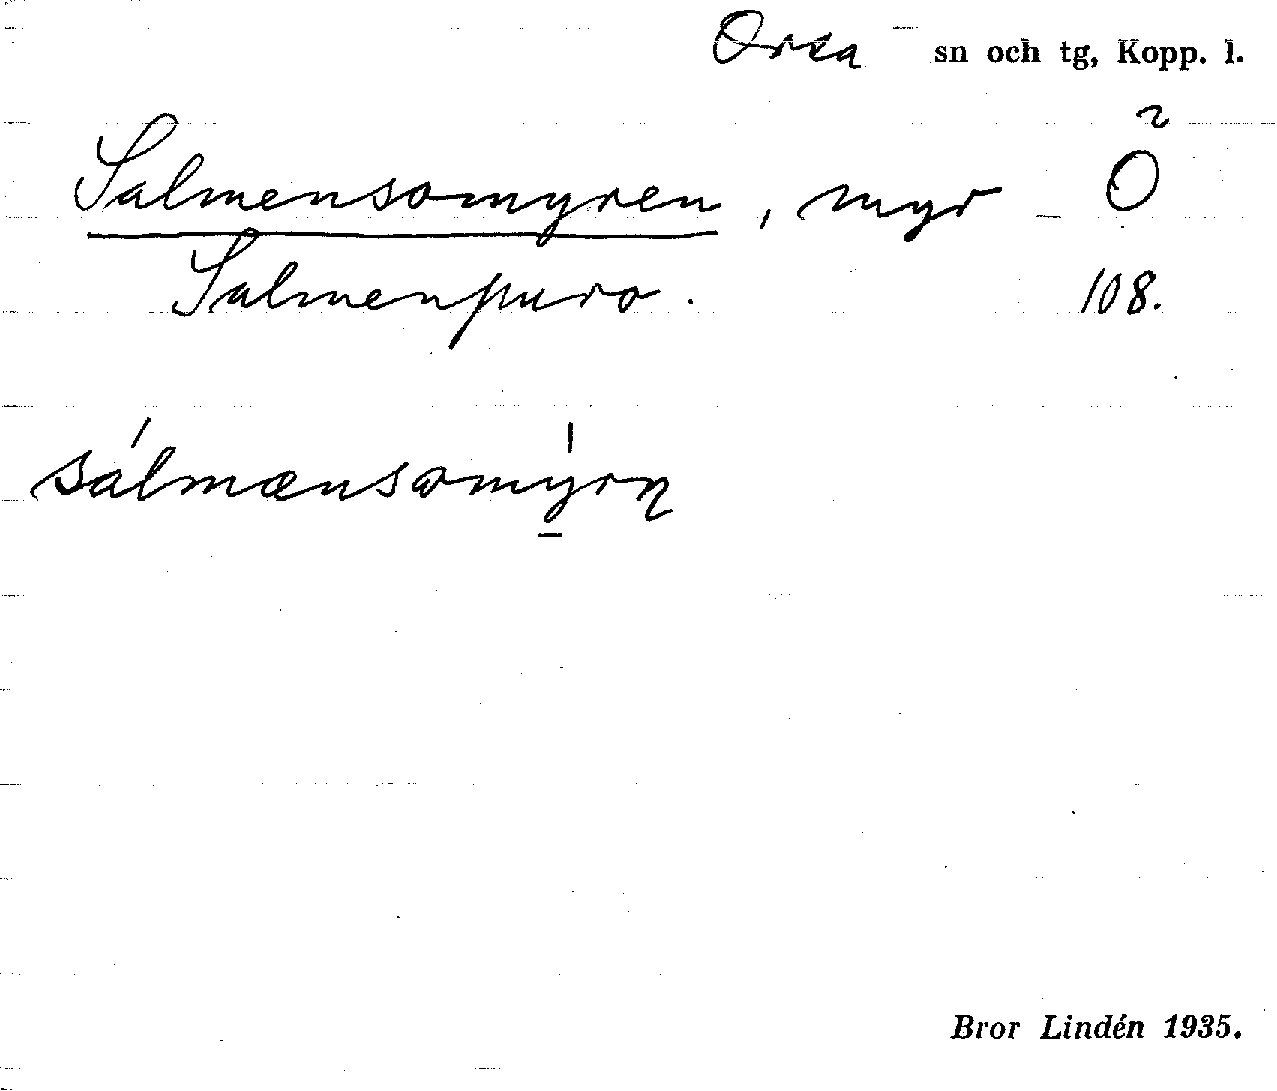 Orsa sn och tg, Kopp. l.
Salmensomyren, myr Õ
Salmenpuro. 108.
sálmænsomýrn̥
Bror Lindén 1935.